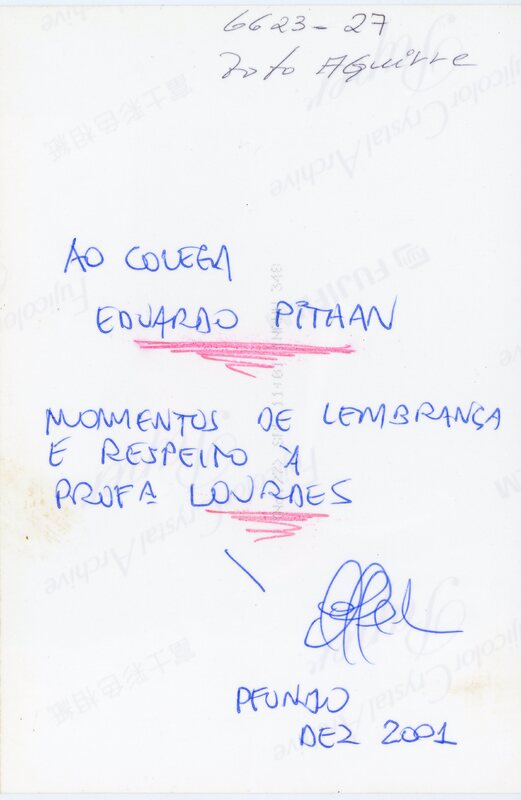 6623-27
Foto Aguirre
AO COLEGA
EDUARDO PITHAN
MOMENTOS DE LEMBRANÇA
E RESPEITO À
PROFª LOURDES
PFUNDO
DEZ 2001
Fujicolor Crystal Archive
Paper
富士彩色相紙
FUJI